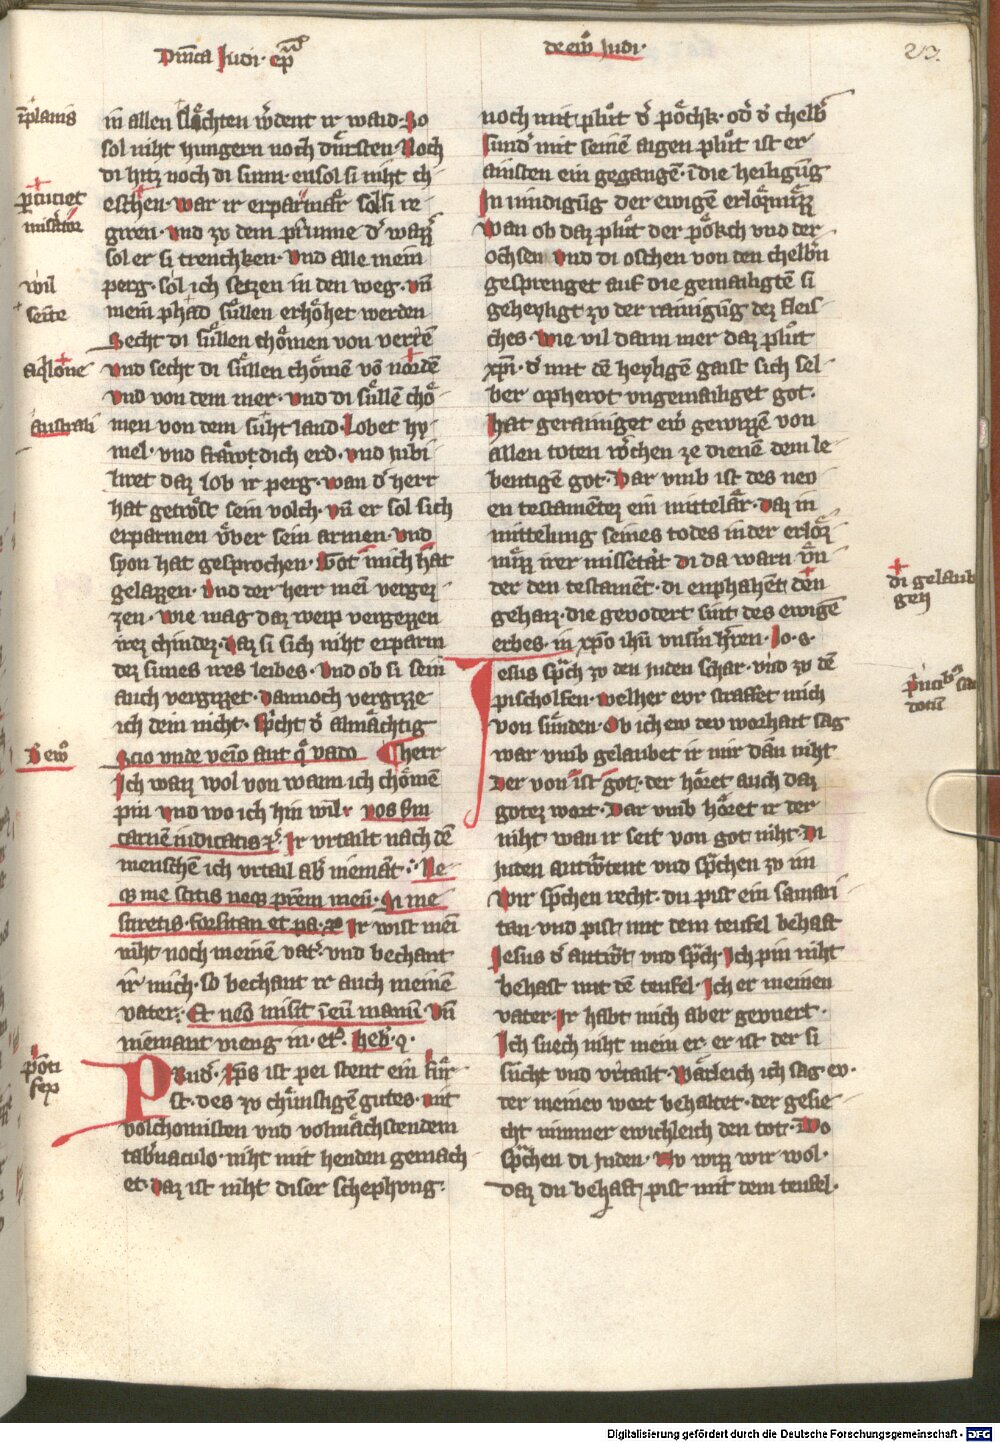 Dm̄ca Judi· ep̄la
de ew̄ Judi·
23.
in allen slǎchten w̄dent ir waid· So
sol niht hungern noch důrsten· Noch
di hitz noch di sunn· en sol si niht ch
eschen· war ir erparmǎr sol si re
giren· vnd zv dem prunne d' wazz'
sol er si trenchken· vnd alle mein
perg· sol ich setzen in den weg· vn̄
mein phad sůllen erhŏhet werden
Secht di sůllen chŏmen von verrē
vnd secht di sůllen chŏmē vō nordē
vnd von dem mer· vnd di sůllē chŏ
men von dem suht land· Lobet hy
mel· vnd frǎwt dich erd· vnd iubi
liret daz lob ir perg· wan d' herr
hat getrŏst sein volch· vn̄ er sol sich
erparmen v̊ber sein armen· vnd
syon hat gesprochen· Got mich hat
gelazzen· vnd der herr mei vergez
zen· wie mag daz weip vergezzen
irez chindez· daz si sich niht erparm
dez sunes ires leibes· vnd ob si sein
auch vergizzet· dannoch vergizze
ich dein nicht· sp̄cht d' almǎchtig
Scio vnde veīo aut q̊ vado herr
Ich waz wol von wann ich chŏmē
pin vnd wo ich hin wil· vos s̄m
carnē iudicatis zc̄· Ir vrtailt nach dē
menschē ich vrtail ab' niemāt· Ne
q₃ me scitis neq₃ p̄rem meū· Qi me
sciretis forsitan et pa· Ir wist mei
niht noch meinē vat'· vnd bechant
ir mich· so bechant ir auch meinē
vater· Et nēo misit ī eū manū· Vn̄
niemant vieng in· et̄· hebr̄·9·
Prud'· xp̄s ist pei stent ein fůr
st· des zv chůnftigē gutes· mit
volchomisten vnd volmǎchstendem
tab'naculo· niht mit henden gemach
et· daz ist niht diser schephvng·
noch mit plůt d' pŏchk· od' d' chelb'
sund' mit seinē aigen plůt ist er
ainsten ein gegangē· ī die heiligūg
In vindigūg der ewigē erlŏzmūzz
Wan ob daz plůt der pŏkch vnd der
ochsen vnd di oschen von den chelb'n
gesprenget auf die gemailigtē si
geheyligt zv der rainigūg dez fleis
ches· wie vil dann mer daz plůt
xp̄i· d' mit dē heyligē gaist sich sel
ber opherot vngemailiget got·
hat gerainiget ew̄ gewizzē von
allen toten w̄chen ze dienē dem le
bentigē got· Dar vmb ist des neo
en testamētez ein mittelǎr· daz in
mittelung seines todes in der erlŏz
nůzz irer missetǎt di da warn v̄n
der den testamēt· di enphahēt den
gehaiz· die gevodert sint des ewigē
erbes· in xp̄o ih̄u vns'm h'ren· Jo·8·
Jesus sp̄ch zv den juden schar· vnd zv dē
pischolfen· welher evr straffet mich
von sůnden· Ob ich ew dev worhait sag
war vmb gelaubet ir mir dān niht
Der von ist got· der hŏret auch daz
gotez wort· Dar vmb hŏret ir der
niht· wan ir seit von got niht· Di
juden antw̄tent vnd sp̄chen zv im
Wir sp̄chen recht· du pist ein samari
tan· vnd pist mit dem teufel behaft
Jesus d' antw̄t vnd sp̄ch· Ich pin niht
behaft mit dē teufel· Ich er meinen
vater· Ir habt mich aber gevnert·
Ich suech niht mein er· er ist der si
sucht vnd vrtailt· Wǎrleich ich sag ev·
wer meinev wort behaltet· der gesie
cht nimmer ewichleich den tot· Do
sp̄chen di juden· Nv wizz wir wol·
daz du behaft pist mit dem teufel·
ī planis
wil
seīte
aq̄lone
australi
D' ew̄
pōti
fex
di gelaub
gen
Digitalisierung gefördert durch die Deutsche Forschungsgemeinschaft - DFG